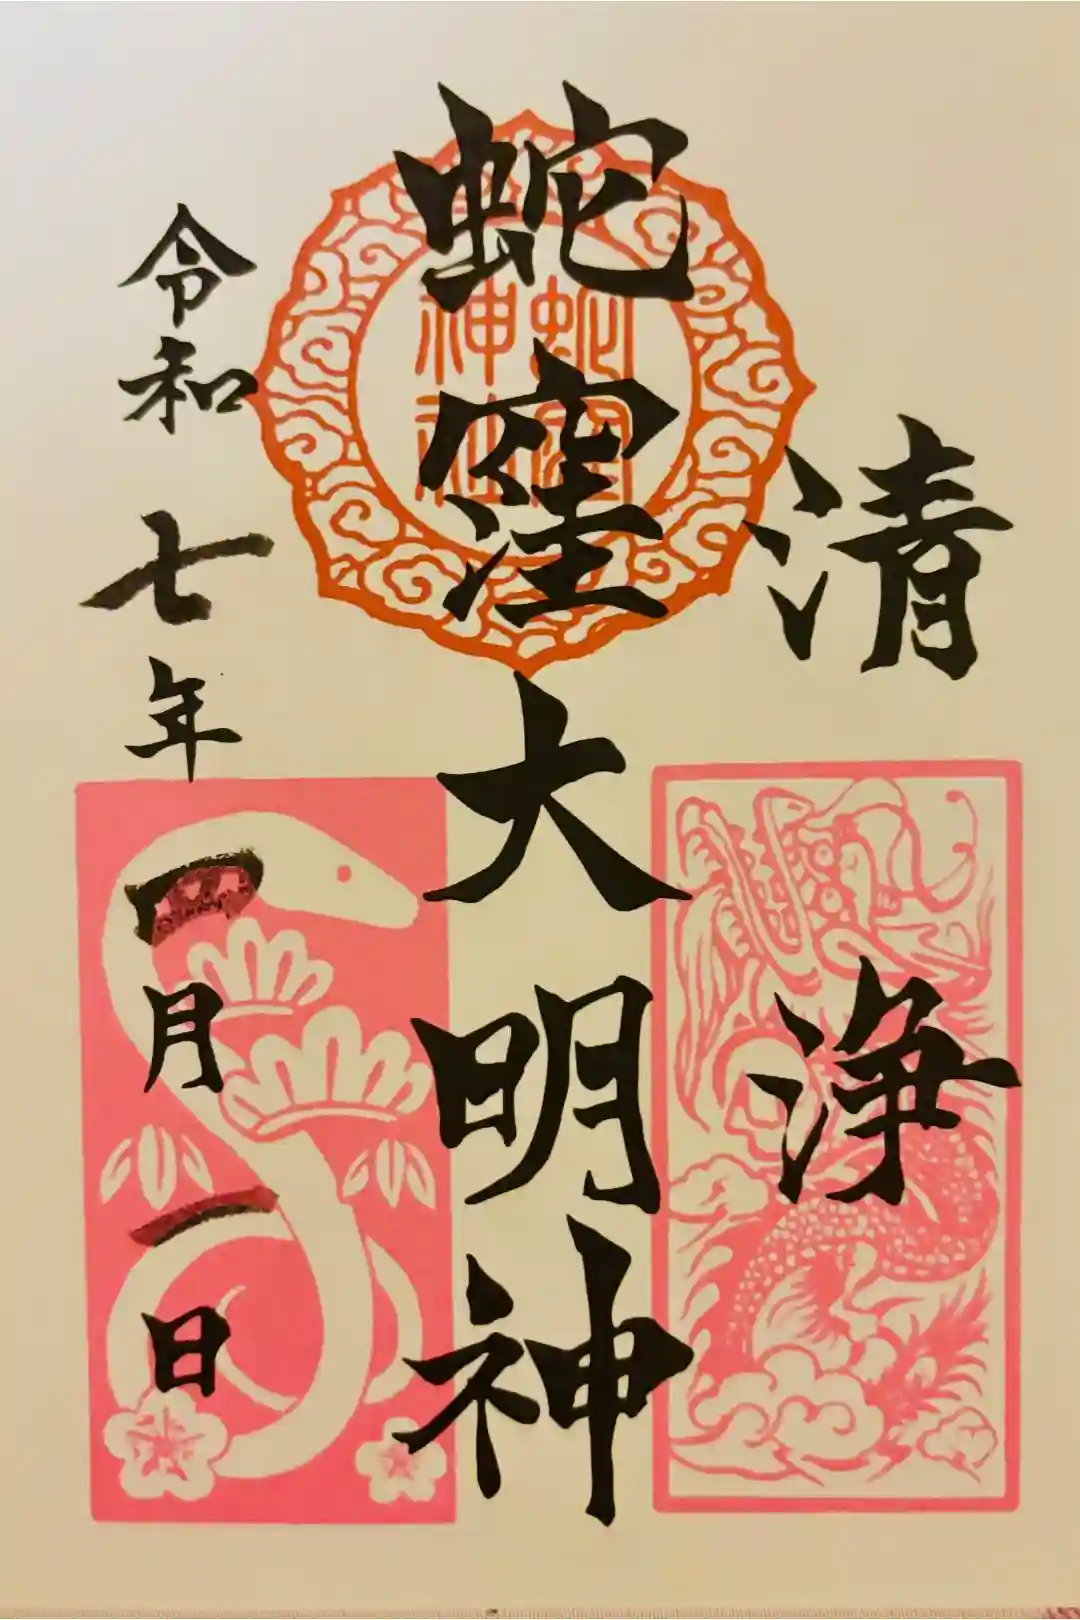 清浄
蛇窪大明神
蛇窪
神社
令和七年一月一日